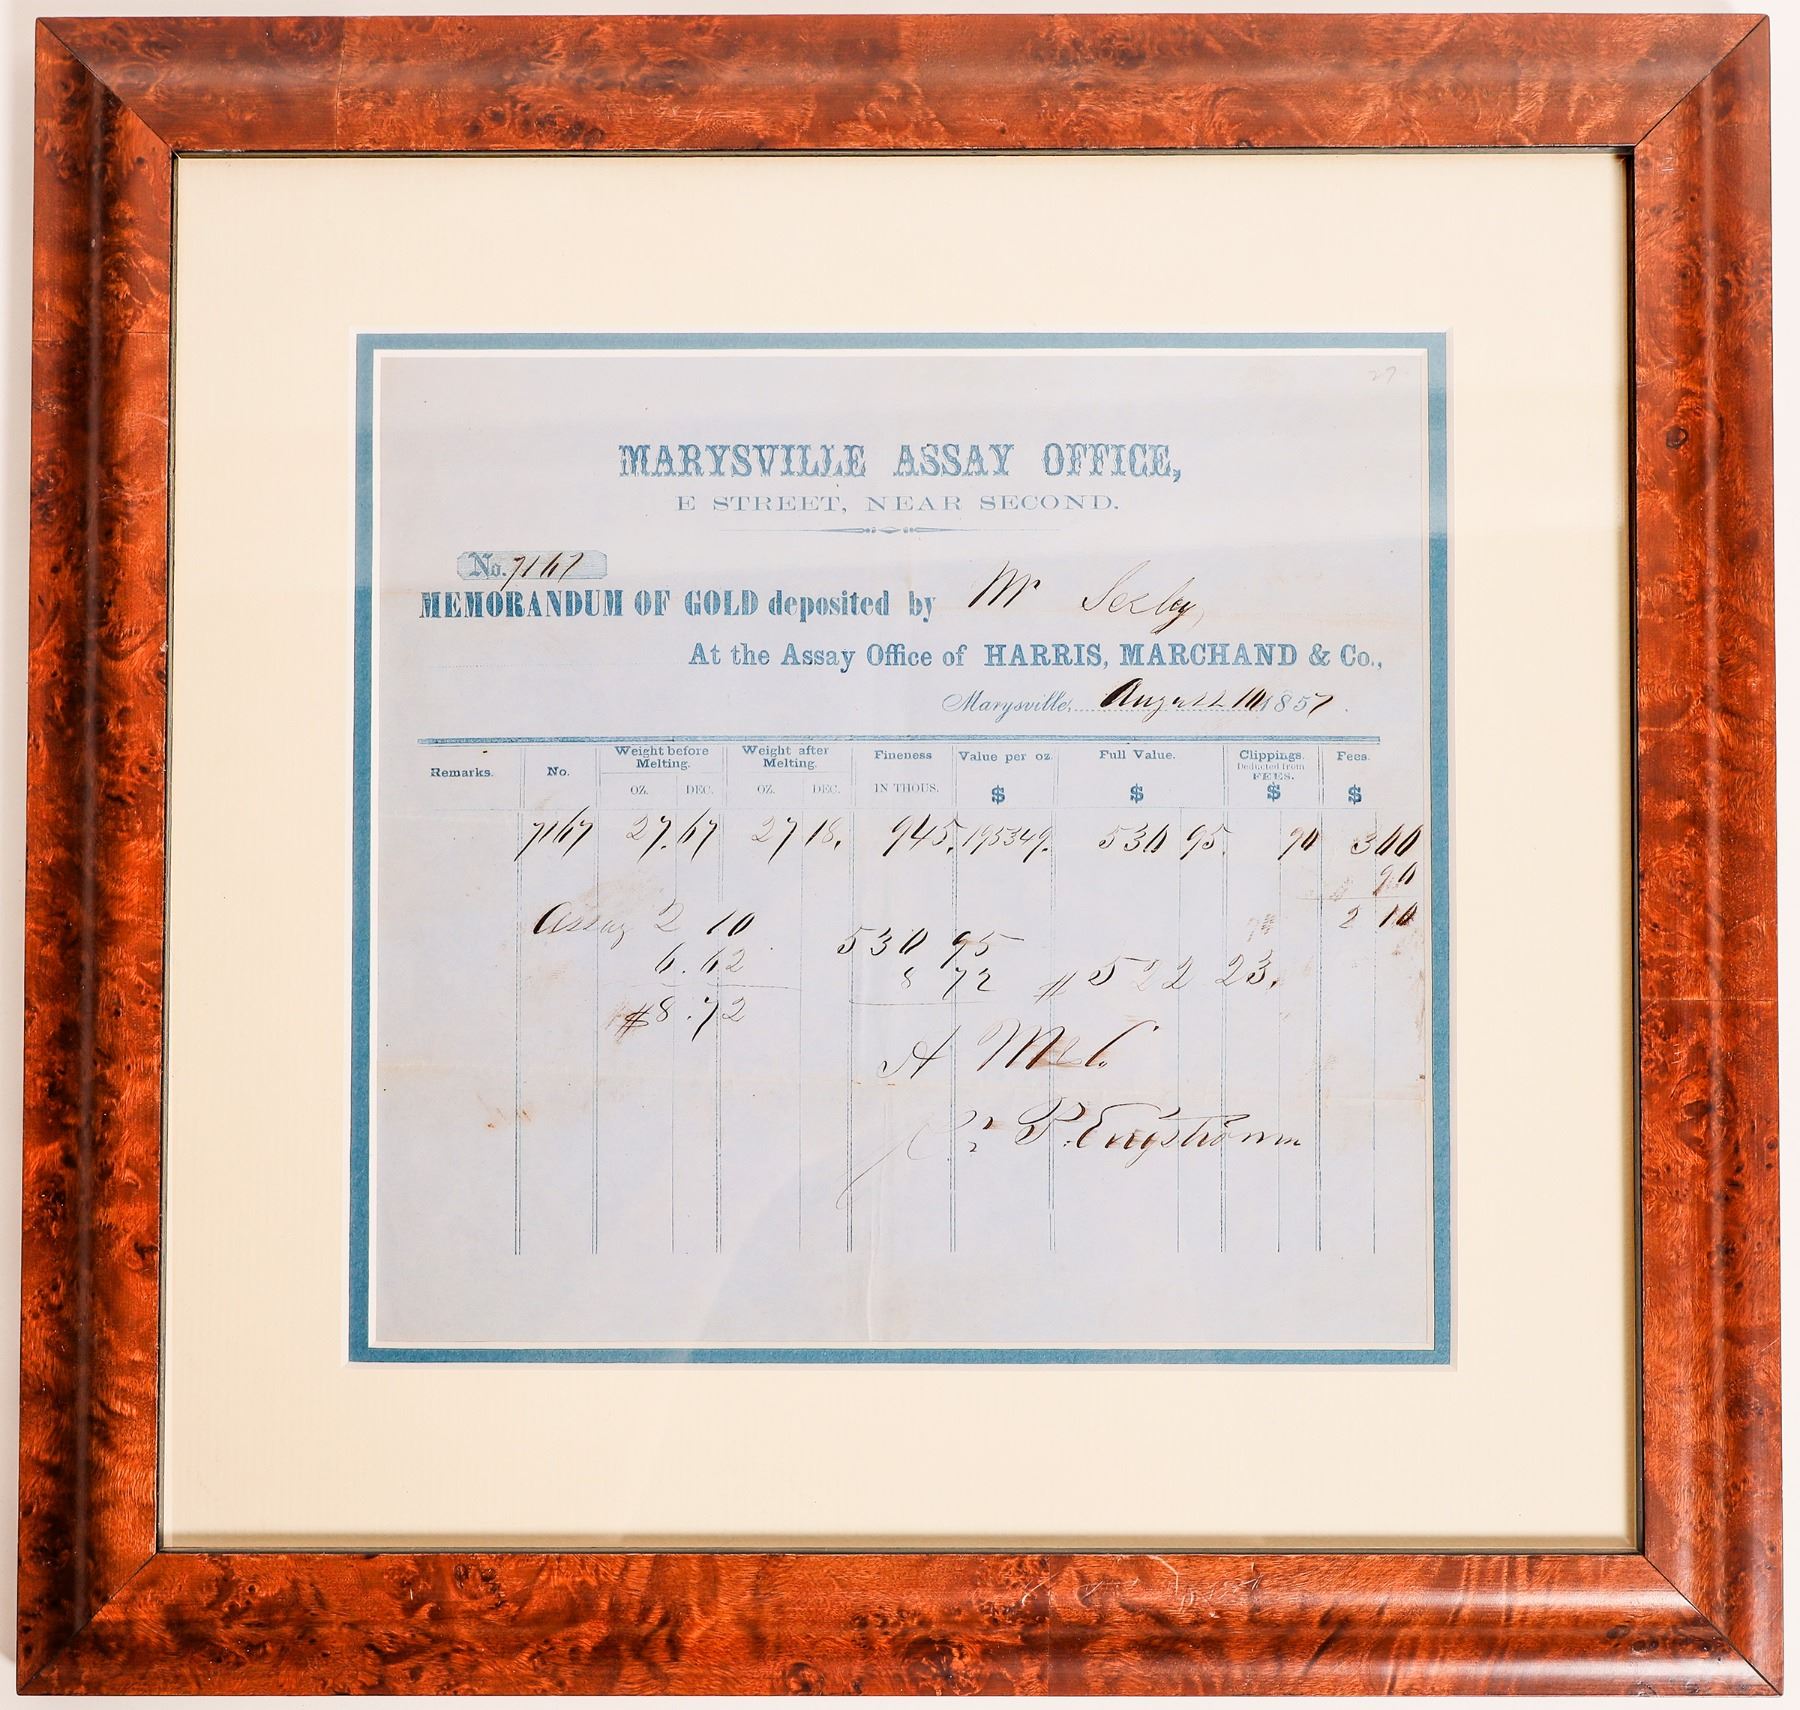 27
MARYSVILLE ASSAY OFFICE,
E STREET, NEAR SECOND.
No. 7167
MEMORANDUM OF GOLD deposited by Mr Seeley
At the Assay Office of HARRIS, MARCHAND & Co.,
Marysville, August 10 1857.
Remarks. No. Weight before Melting. Weight after Melting. Fineness Value per oz. Full Value. Clippings. Deducted from FEES. Fees.
OZ. DEC. OZ. DEC. IN THOUS. $ $ $ $
7167 27.67 27 18. 945. 195349. 530 95. 90 300
90
Assay 2 10 2 10
530 95
6.62
8 72 # 522 23.
$8.72
A McC.
P. Engstromm